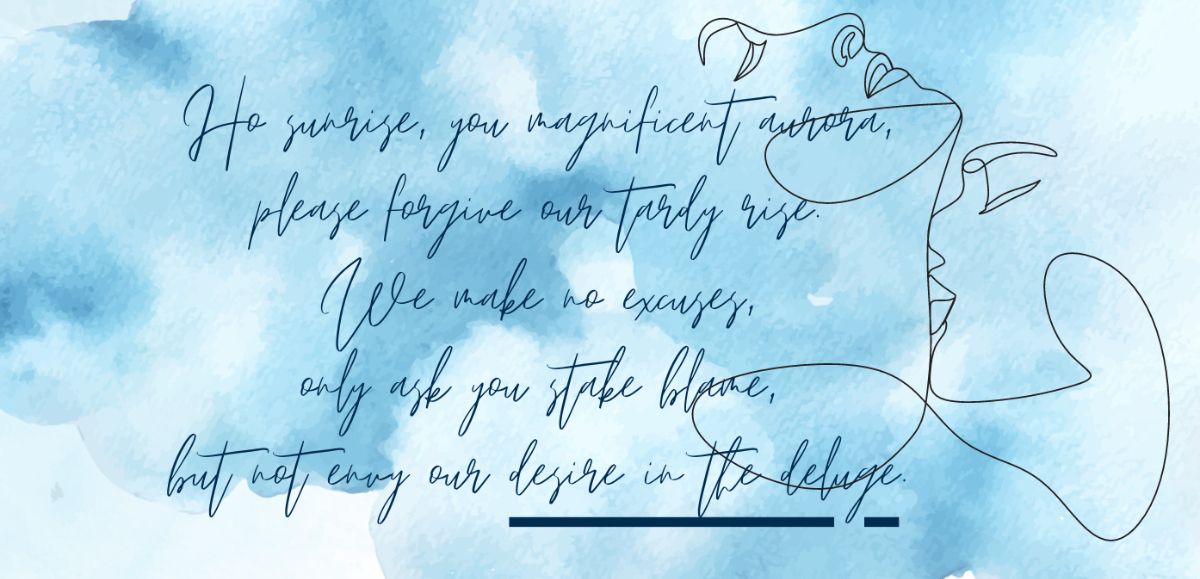 Ho sunrise, you magnificent aurora,
please forgive our tardy rise.
We make no excuses,
only ask you stake blame,
but not envy our desire in the deluge.